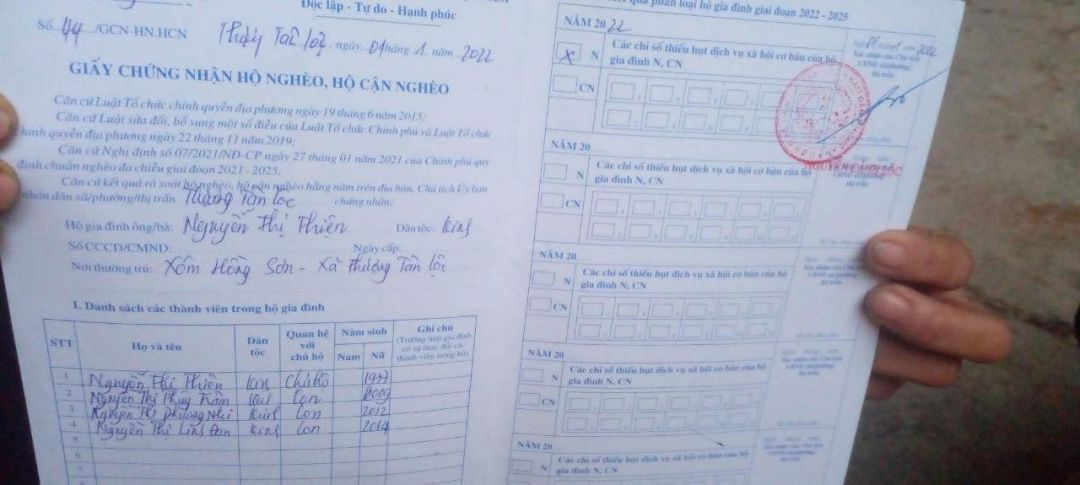 Độc lập - Tự do - Hạnh phúc
Số: 44 /GCN-HN.HCN
Thượng Tân Lộc, ngày 01 tháng 1 năm 2022
GIẤY CHỨNG NHẬN HỘ NGHÈO, HỘ CẬN NGHÈO
Căn cứ Luật Tổ chức chính quyền địa phương ngày 19 tháng 6 năm 2015;
Căn cứ Luật sửa đổi, bổ sung một số điều của Luật Tổ chức Chính phủ và Luật Tổ chức
chính quyền địa phương ngày 22 tháng 11 năm 2019;
Căn cứ Nghị định số 07/2021/NĐ-CP ngày 27 tháng 01 năm 2021 của Chính phủ quy
định chuẩn nghèo đa chiều giai đoạn 2021 - 2025;
Căn cứ kết quả rà soát hộ nghèo, hộ cận nghèo hằng năm trên địa bàn, Chủ tịch Ủy ban
nhân dân xã/phường/thị trấn Thượng Tân Lộc chứng nhận:
Hộ gia đình ông/bà: Nguyễn Thị Thiện Dân tộc: kinh
Số CCCD/CMND: Ngày cấp:
Nơi thường trú: Xóm Hồng Sơn - Xã Thượng Tân Lộc
I. Danh sách các thành viên trong hộ gia đình
STT Họ và tên Dân tộc Quan hệ với chủ hộ Năm sinh Nam Nữ Ghi chú (Trường hợp gia đình có sự thay đổi các thành viên trong hộ)
1 Nguyễn Thị Thiện kin Chủ hộ
2 Nguyễn Thị Thuỳ Trâm Con
3 Nguyễn Thị Phương Nhi kinh Con 2012
4 Nguyễn Thị Linh Đan kinh Con 2014
5
6
7
8
quả phân loại hộ gia đình giai đoạn 2022 - 2025
NĂM 2022
X N
CN
Các chỉ số thiếu hụt dịch vụ xã hội cơ bản của hộ
gia đình N, CN
Xác nhận của Chủ tịch
UBND xã/phường/
thị trấn
NĂM 20
N
CN
Các chỉ số thiếu hụt dịch vụ xã hội cơ bản của hộ
gia đình N, CN
NĂM 20
N
CN
Các chỉ số thiếu hụt dịch vụ xã hội cơ bản của hộ
gia đình N, CN
Xác nhận của Chủ tịch
UBND xã/phường/
thị trấn
NĂM 20
N
CN
Các chỉ số thiếu hụt dịch vụ xã hội cơ bản của hộ
gia đình N, CN
Xác nhận của Chủ tịch
UBND xã/phường/
thị trấn
NĂM 20
N
Các chỉ số thiếu hụt dịch vụ xã hội cơ bản của hộ
gia đình N, CN